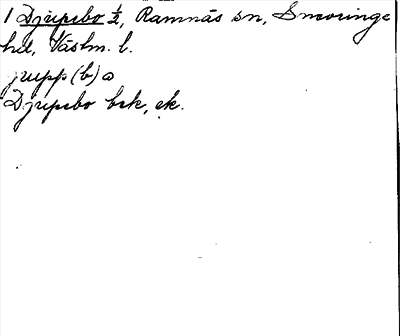 1 Djupebo ½, Ramnäs sn, Snevringe
hd, Västm. l.
jupp(b)o
Djupebo brk, ek.